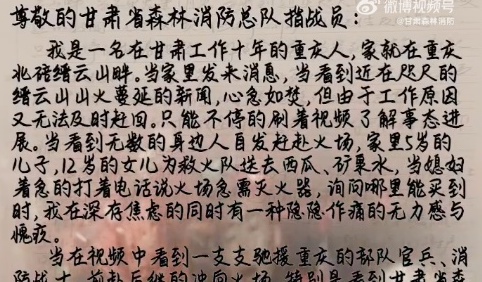 微博视频号
@甘肃森林消防
尊敬的甘肃省森林消防总队指战员：
我是一名在甘肃工作十年的重庆人，家就在重庆
北碚缙云山畔。当家里发来消息，当看到近在咫尺的
缙云山山火蔓延的新闻，心急如焚，但由于工作原因
又无法及时赶回。只能不停的刷着视频了解事态进
展。当看到无数的身边人自发赶赴火场，家里5岁的
儿子，12岁的女儿为救火队送去西瓜、矿泉水，当媳妇
着急的打着电话说火场急需灭火器，询问哪里能买到
时，我在深存焦虑的同时有一种隐隐作痛的无力感与
愧疚。
当在视频中看到一支支驰援重庆的部队官兵、消
防战士，前赴后继的冲向火场，特别是看到甘肃省森